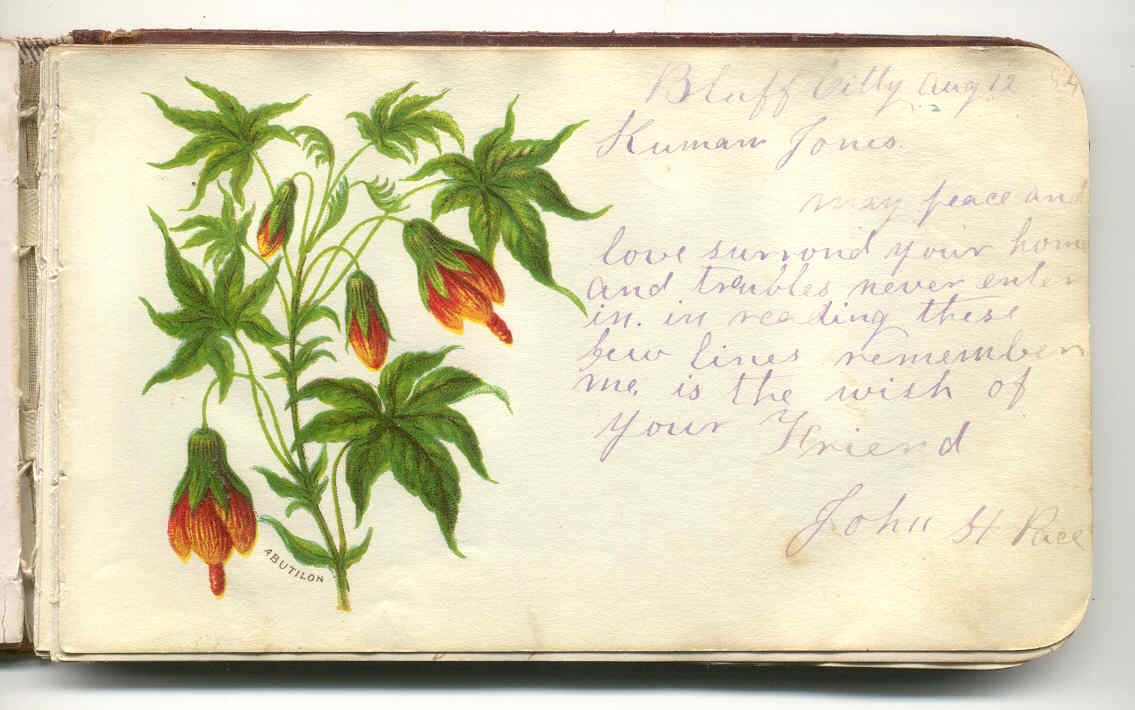 Bluff Citty Aug 12
Kuman Jones.
may peace and
love surrond your home
and troubles never enter
in. in reading these
few lines remember
me. is the wish of
your Friend
John H Pace
ABUTILON